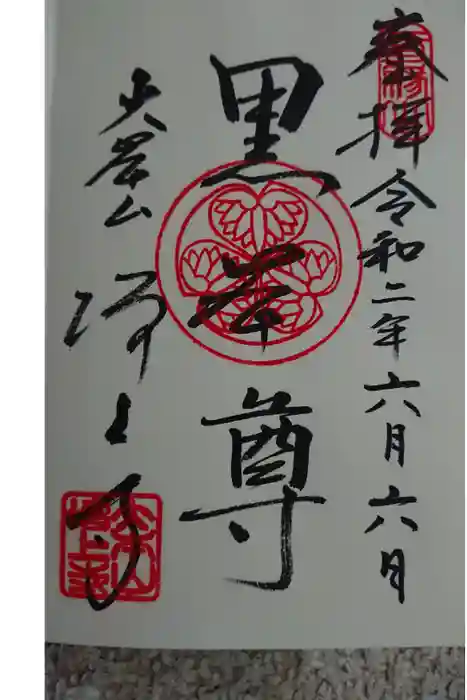 奉拝 令和二年六月六日
黒本尊
三縁山 増上寺